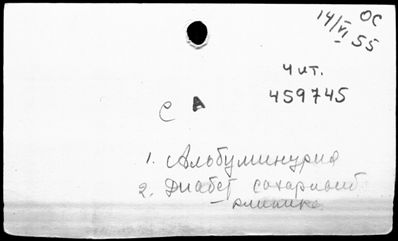 ОС
14/VI 55
Чит.
459745
С А
1. Альбуминурия
2. Диабет сахарный
– клиника